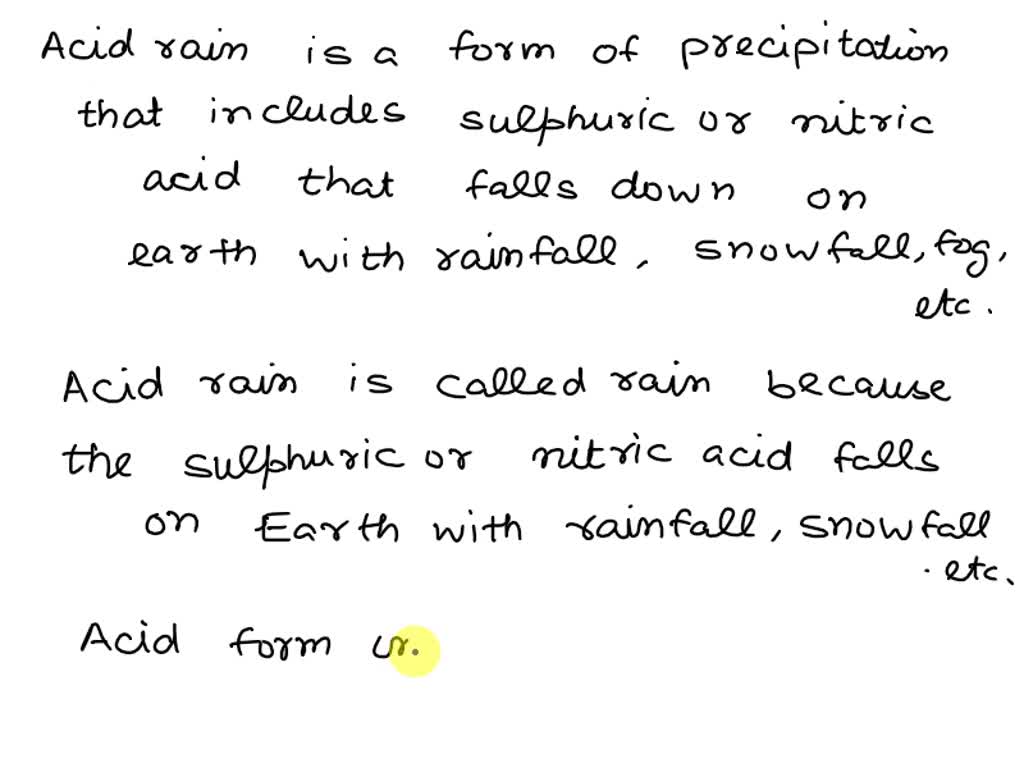 Acid rain is a form of precipitation
that includes sulphuric or nitric
acid that falls down on
earth with rainfall, snowfall, fog,
etc.
Acid rain is called rain because
the sulphuric or nitric acid falls
on Earth with rainfall, snowfall
etc.
Acid form